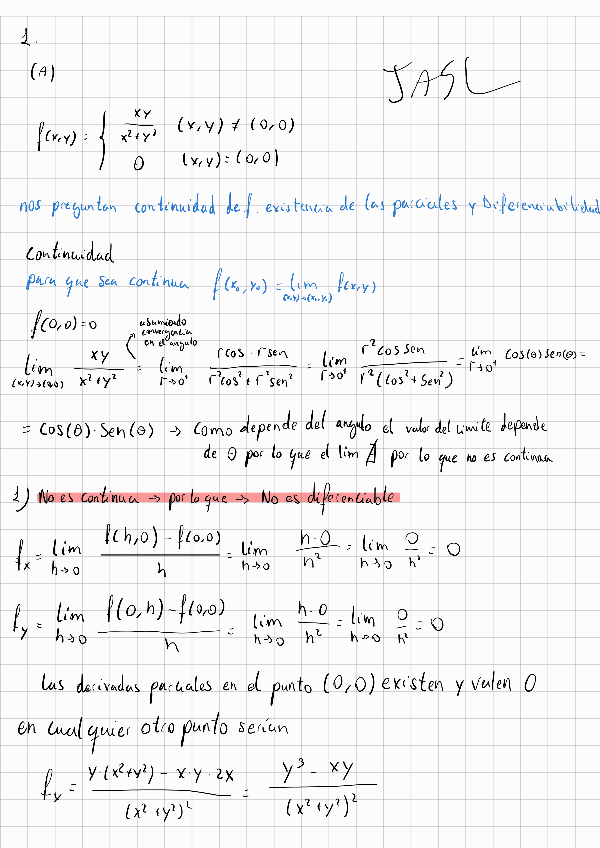 1.
(A)
JASL
f(x,y) = { xy / x²+y² (x,y) ≠ (0,0)
0 (x,y) = (0,0)
nos preguntan continuidad de f. existencia de las parciales y Diferenciabilidad
Continuidad
para que sea continua f(x₀,y₀) = lim (x,y)→(x₀,y₀) f(x,y)
f(0,0)=0
asumiendo convergencia en el angulo
lim (x,y)→(0,0) xy / x²+y² = lim r→0⁺ rcos · rsen / r²cos²+r²sen² = lim r→0⁺ r²cos sen / r²(cos²+sen²) = lim r→0⁺ cos(θ)sen(θ) =
= cos(θ)·sen(θ) → como depende del angulo el valor del limite depende
de θ por lo que el lim ∄ por lo que no es continua
1) No es continua → por lo que → No es diferenciable
fx = lim h→0 f(h,0) - f(0,0) / h = lim h→0 h·0 / h² = lim h→0 0 / h² = 0
fy = lim h→0 f(0,h) - f(0,0) / h = lim h→0 h·0 / h² = lim h→0 0 / h² = 0
Las derivadas parciales en el punto (0,0) existen y valen 0
en cualquier otro punto serían
fx = y·(x²+y²) - x·y·2x / (x²+y²)² = y³ - xy / (x²+y²)²